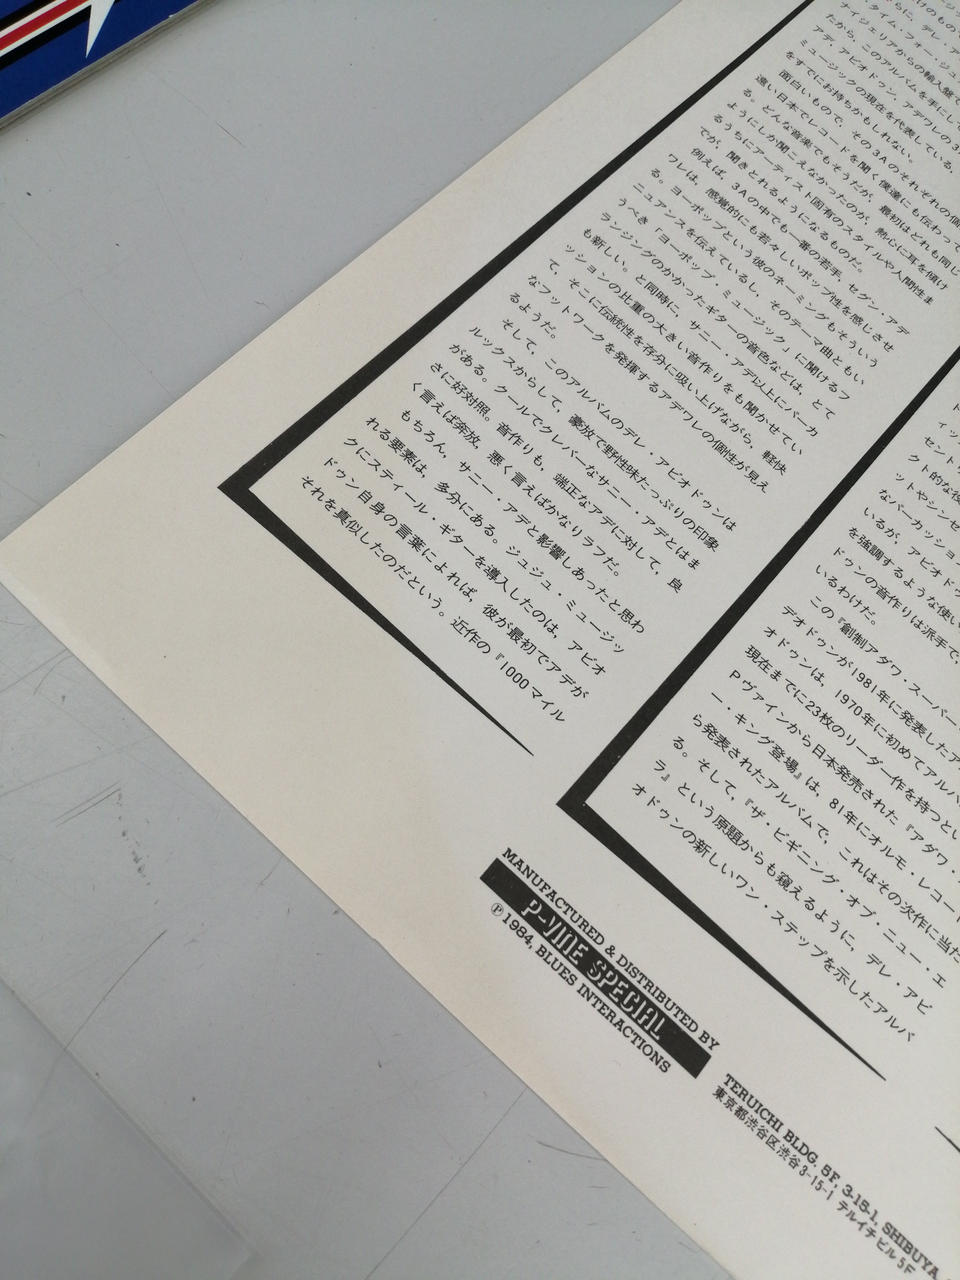 タイム・フォー・ジュ
ナイジェリアからの輸入盤で
たから、このアルバムを手にして
アデ、アビオドゥン、アデワレの3
ミュージックの現在を代表している、
をすでにお持ちかもしれない。
面白いもので、その3Aのそれぞれの個
遠い日本でレコードを聞く僕達にも伝わって
る。どんな音楽でもそうだが、最初はどれも同じ
ようにしか聞こえなかったのが、熱心に耳を傾け
るうちにアーティスト固有のスタイルや人間性ま
でが、聞きとれるようになるものだ。
例えば、3Aの中でも一番の若手、セグン・アデ
ワレは、感覚的にも若々しいポップ性を感じさせ
る。ヨーポップという彼のネーミングもそういう
ニュアンスを伝えているし、そのテーマ曲ともい
うべき「ヨーポップ・ミュージック」に聞けるフ
ランジングのかかったギターの音色などは、とて
も新しい。と同時に、サニー・アデ以上にパーカ
ッションの比重の大きい音作りをも聞かせてい
て、そこに伝統性を存分に吸い上げながら、軽快
なフットワークを発揮するアデワレの個性が見え
るようだ。
そして、このアルバムのデレ・アビオドゥンは
ルックスからして、豪放で野性味たっぷりの印象
がある。クールでクレバーなサニー・アデとはま
さに好対照。音作りも、端正なアデに対して、良
く言えば奔放、悪く言えばかなりラフだ。
もちろん、サニー・アデと影響しあったと思わ
れる要素は、多分にある。ジュジュ・ミュージッ
クにスティール・ギターを導入したのは、アビオ
ドゥン自身の言葉によれば、彼が最初でアデが
それを真似したのだという。近作の『1000マイル
セント
クト的な役
ットやシンセ
なパーカッショ
いるが、アビオドゥ
を強調するような使い
ドゥンの音作りは派手で、
いるわけだ。
この『創制アダワ・スーパー
デオドゥンが1981年に発表したア
オドゥンは、1970年に初めてアルバ
現在までに23枚のリーダー作を持つとい
Pヴァインから日本発売された『アダワ・
ー・キング登場』は、81年にオルモ・レコー
ら発表されたアルバムで、これはその次作に当た
る。そして、『ザ・ビギニング・オブ・ニュー・エ
ラ』という原題からも窺えるように、デレ・アビ
オドゥンの新しいワン・ステップを示したアルバ
MANUFACTURED & DISTRIBUTED BY
P-VINE SPECIAL
Ⓟ 1984, BLUES INTERACTIONS
TERUICHI BLDG. 5F, 3-15-1, SHIBUYA
東京都渋谷区渋谷3-15-1 テルイチビル5F